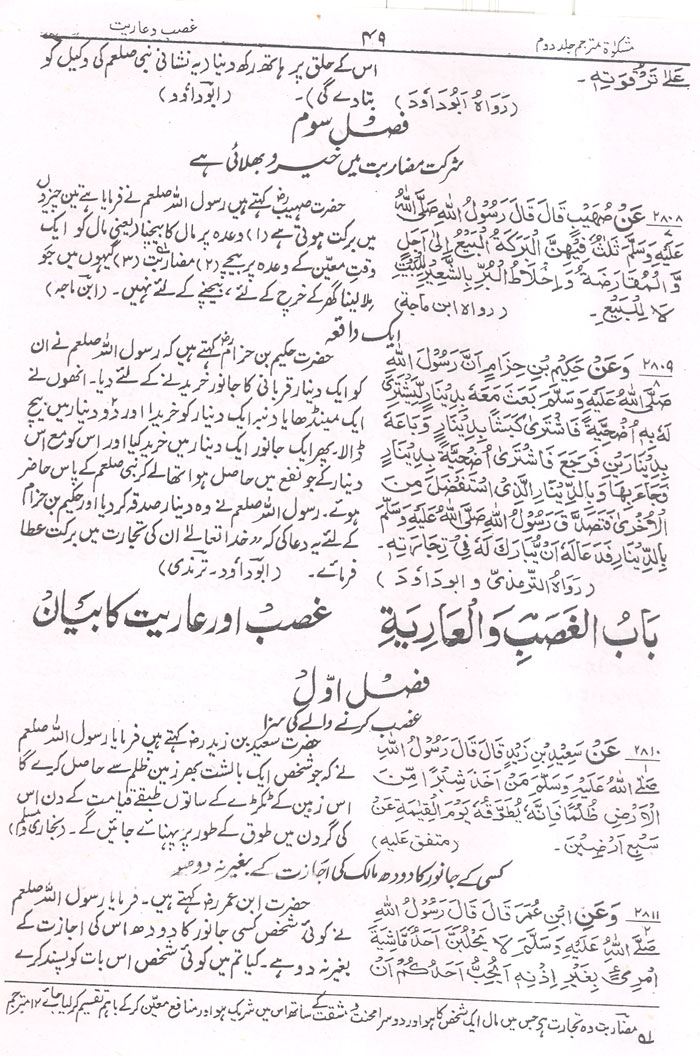 مشکوٰۃ مترجم جلد دوم
۴۹
غصب و عاریت
عَلٰى تَرْقُوَتِهٖ۔
(رَوَاهُ اَبُوْدَاوٗدَ)
اس کے حلق پر ہاتھ رکھ دینا (یہ نشانی نبی صلعم کی وکیل کو
بتا دے گی)۔ (ابوداؤد)
فصل سوم
شرکت مضاربت میں خیر و بھلائی ہے
۲۸۰۸
۷
عَنْ صُهَيْبٍ قَالَ قَالَ رَسُوْلُ اللهِ صَلَّى اللهُ
عَلَيْهِ وَسَلَّمَ ثَلٰثٌ فِيْهِنَّ الْبَرَكَةُ اَلْبَيْعُ اِلٰى اَجَلٍ
وَّالْمُقَارَضَةُ وَاِخْلَاطُ الْبُرِّ بِالشَّعِيْرِ لِلْبَيْتِ
لَا لِلْبَيْعِ۔ (رواه ابن ماجة)
حضرت صہیبؓ کہتے ہیں رسول اللہ صلعم نے فرمایا ہے تین چیزوں
میں برکت ہوتی ہے (۱) وعدہ پر مال کا بیچنا یعنی مال کو ایک
وقت معین کے وعدہ پر بیچے (۲) مضاربت (۳) گیہوں میں جَو
ملا لینا گھر کے خرچ کے لئے، بیچنے کے لئے نہیں۔ (ابن ماجہ)
ایک واقعہ
۲۸۰۹
۸
وَعَنْ حَكِيْمِ بْنِ حِزَامٍ اَنَّ رَسُوْلَ اللهِ
صَلَّى اللهُ عَلَيْهِ وَسَلَّمَ بَعَثَ مَعَهٗ بِدِيْنَارٍ لِّيَشْتَرِىَ
لَهٗ بِهٖ اُضْحِيَةً فَاشْتَرٰى كَبْشًا بِدِيْنَارٍ وَّبَاعَهٗ
بِدِيْنَارَيْنِ فَرَجَعَ فَاشْتَرٰى اُضْحِيَةً بِدِيْنَارٍ
فَجَاءَ بِهَا وَبِالدِّيْنَارِ الَّذِى اسْتَفْضَلَ مِنَ
الْاُخْرٰى فَتَصَدَّقَ رَسُوْلُ اللهِ صَلَّى اللهُ عَلَيْهِ وَسَلَّمَ
بِالدِّيْنَارِ فَدَعَا لَهٗ اَنْ يُّبَارَكَ لَهٗ فِىْ تِجَارَتِهٖ۔
(رَوَاهُ التِّرْمِذِىُّ وَابوداوٗدَ)
حضرت حکیم بن حزامؓ کہتے ہیں کہ رسول اللہ صلعم نے ان
کو ایک دینار قربانی کا جانور خریدنے کے لئے دیا۔ انھوں نے
ایک مینڈھا یا دنبہ ایک دینار کو خریدا اور دو دینار میں بیچ
ڈالا۔ پھر ایک جانور ایک دینار میں خرید کیا اور اس کو مع اس
دینار کے جو نفع میں حاصل ہوا تھا لے کر نبی صلعم کے پاس حاضر
ہوئے۔ رسول اللہ صلعم نے وہ دینار صدقہ کر دیا اور حکیم بن حزام
کے لئے یہ دعا کی کہ "خدا تعالےٰ ان کی تجارت میں برکت عطا
فرمائے۔ (ابوداود۔ ترمذی)
بَابُ الْغَصَبِ وَالْعَارِيَةِ
غصب اور عاریت کا بیان
فصل اوّل
غصب کرنے والے کی سزا
۲۸۱۰
۱
عَنْ سَعِيْدِ بْنِ زَيْدٍ قَالَ قَالَ رَسُوْلُ اللهِ
صَلَّى اللهُ عَلَيْهِ وَسَلَّمَ مَنْ اَخَذَ شِبْرًا مِّنَ
الْاَرْضِ ظُلْمًا فَاِنَّهٗ يُطَوَّقُهٗ يَوْمَ الْقِيٰمَةِ مِنْ
سَبْعِ اَرْضِيْنَ۔ (متفق عليه)
حضرت سعید بن زیدؓ کہتے ہیں فرمایا رسول اللہ صلعم
نے کہ جو شخص ایک بالشت بھر زمین ظلم سے حاصل کرے گا
اس زمین کے ٹکڑے کے ساتوں طبقے قیامت کے دن اس
کی گردن میں طوق کے طور پر پہنائے جائیں گے۔ (بخاری و مسلم)
کسی کے جانور کا دودھ مالک کی اجازت کے بغیر نہ دوھو
۲۸۱۱
۲
وَعَنِ ابْنِ عُمَرَ قَالَ قَالَ رَسُوْلُ اللهِ
صَلَّى اللهُ عَلَيْهِ وَسَلَّمَ لَا يَحْلُبَنَّ اَحَدٌ مَّاشِيَةَ
امْرِئٍ بِغَيْرِ اِذْنِهٖ اَيُحِبُّ اَحَدُكُمْ اَنْ
حضرت ابن عمرؓ کہتے ہیں۔ فرمایا رسول اللہ صلعم
نے کوئی شخص کسی جانور کا دودھ اس کی اجازت کے
بغیر نہ دوہے۔ کیا تم میں کوئی شخص اس بات کو پسند کرے
مضاربت وہ تجارت ہے جس میں مال ایک شخص کا ہو اور دوسرا محنت و مشقت کے ساتھ اس میں شریک ہو اور منافع معین کر کے باہم تقسیم کر لیا جائے ۱۲ مترجم